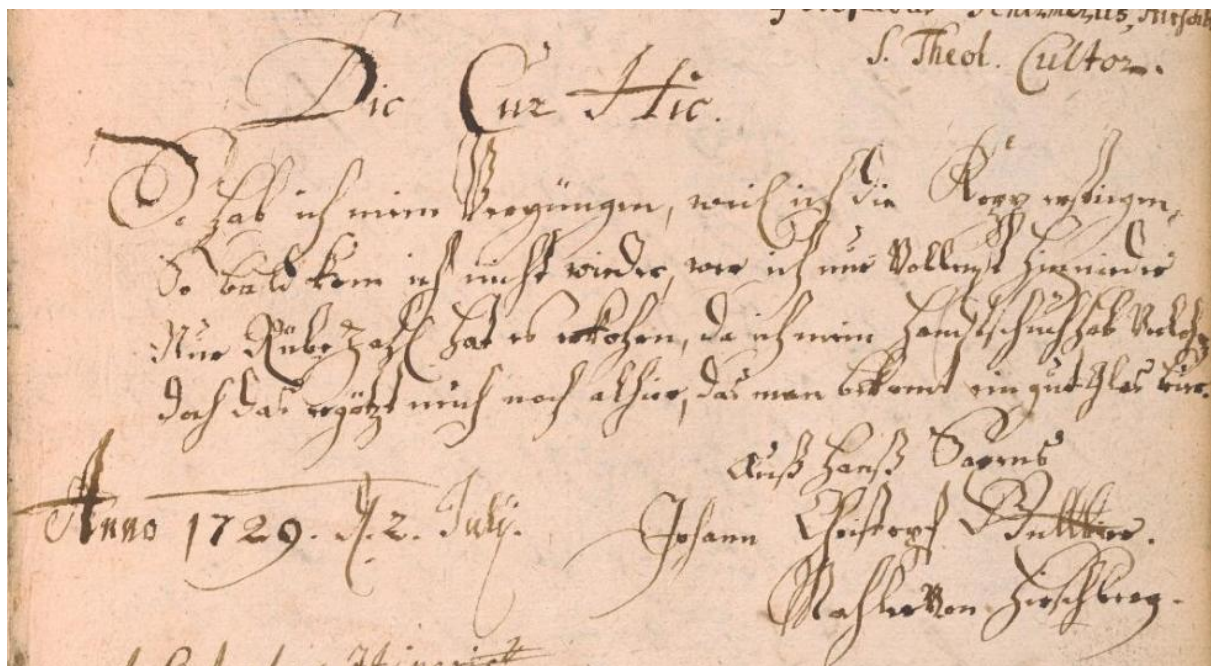 S. Theol. Cultor.
Dic Cur Hic.
So hab ich mein Vergnügen, weil ich die Kopp erstiegen,
So bald kom ich nicht wieder, wer ich nur Vollenst hernieder
Nur Rübezahl hat es erkohren, da ich mein Handtschuch hab Verlohrn
doch das ergötzt mich noch alhier, das man bekomt ein gut glas bier.
Auß Hanß Sagens
Anno 1729. d. 2. July.
Johann Christoph
Mahler Von Hirschberg.